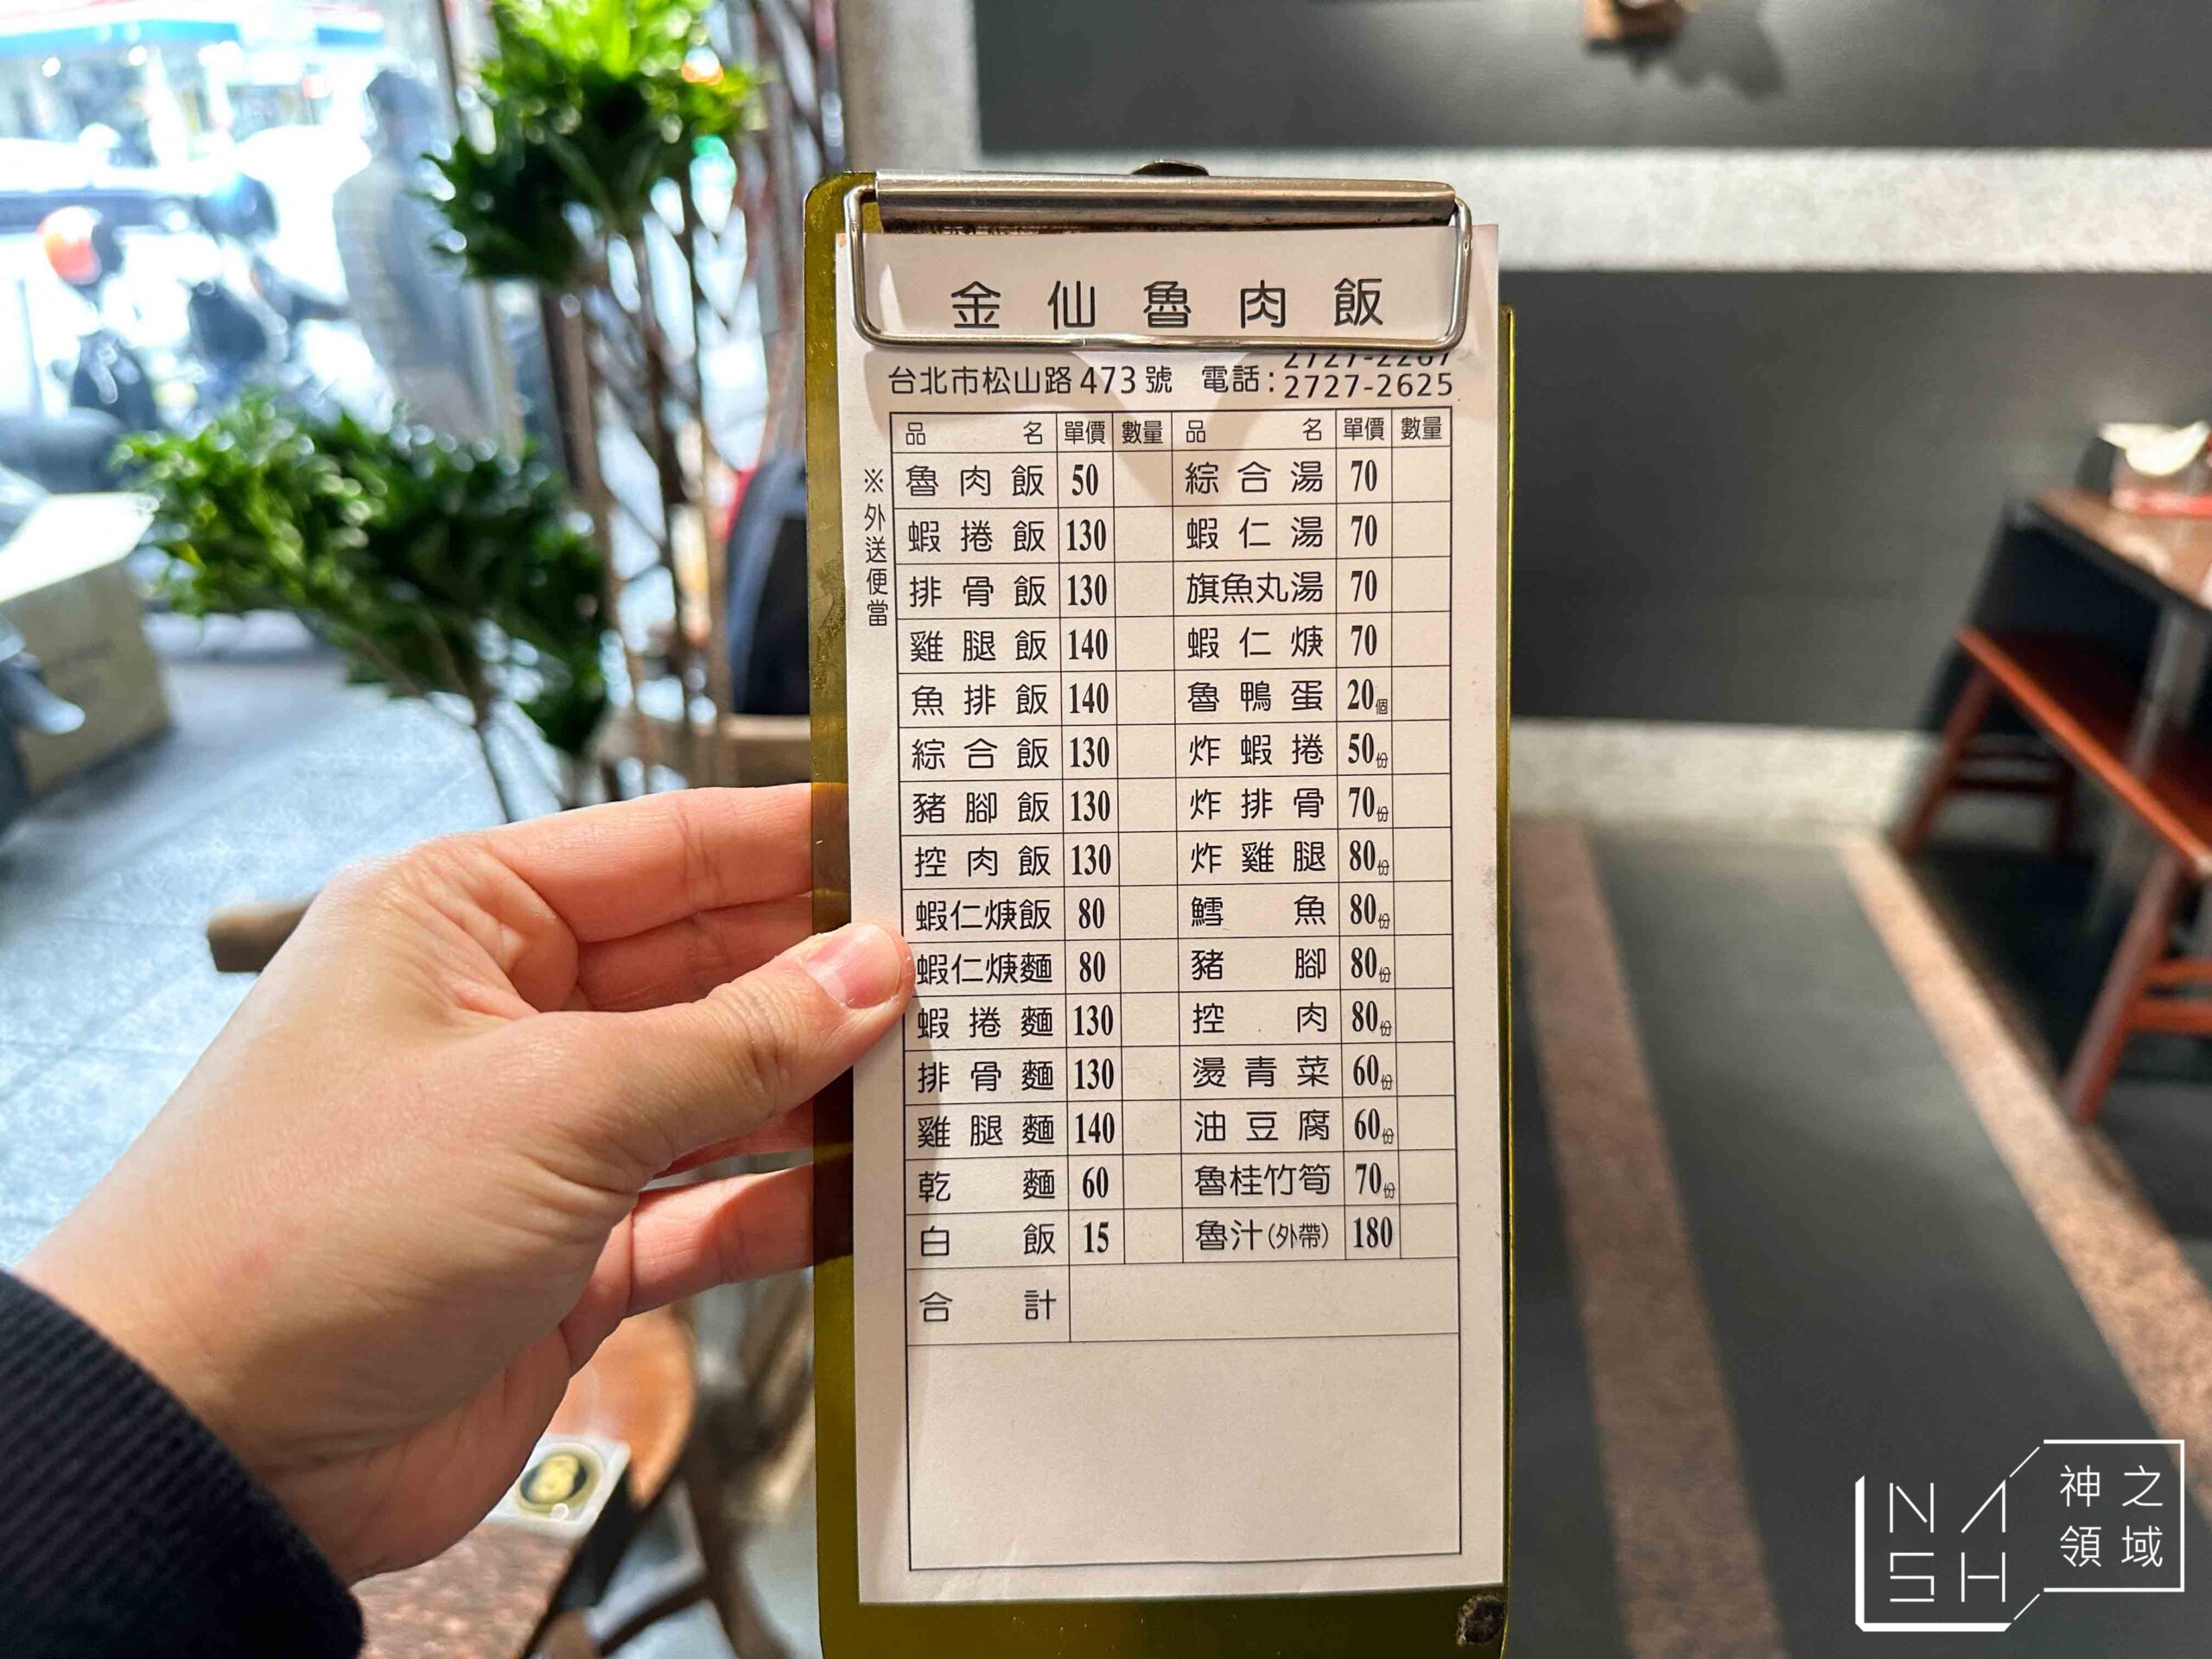 金仙魯肉飯
台北市松山路473號 電話:2727-2267
2727-2625
※外送便當
品名 單價 數量 品名 單價 數量
魯肉飯 50 綜合湯 70
蝦捲飯 130 蝦仁湯 70
排骨飯 130 旗魚丸湯 70
雞腿飯 140 蝦仁焿 70
魚排飯 140 魯鴨蛋 20個
綜合飯 130 炸蝦捲 50份
豬腳飯 130 炸排骨 70份
控肉飯 130 炸雞腿 80份
蝦仁焿飯 80 鱈魚 80份
蝦仁焿麵 80 豬腳 80份
蝦捲麵 130 控肉 80份
排骨麵 130 燙青菜 60份
雞腿麵 140 油豆腐 60份
乾麵 60 魯桂竹筍 70份
白飯 15 魯汁(外帶) 180
合計
NASH
神之領域